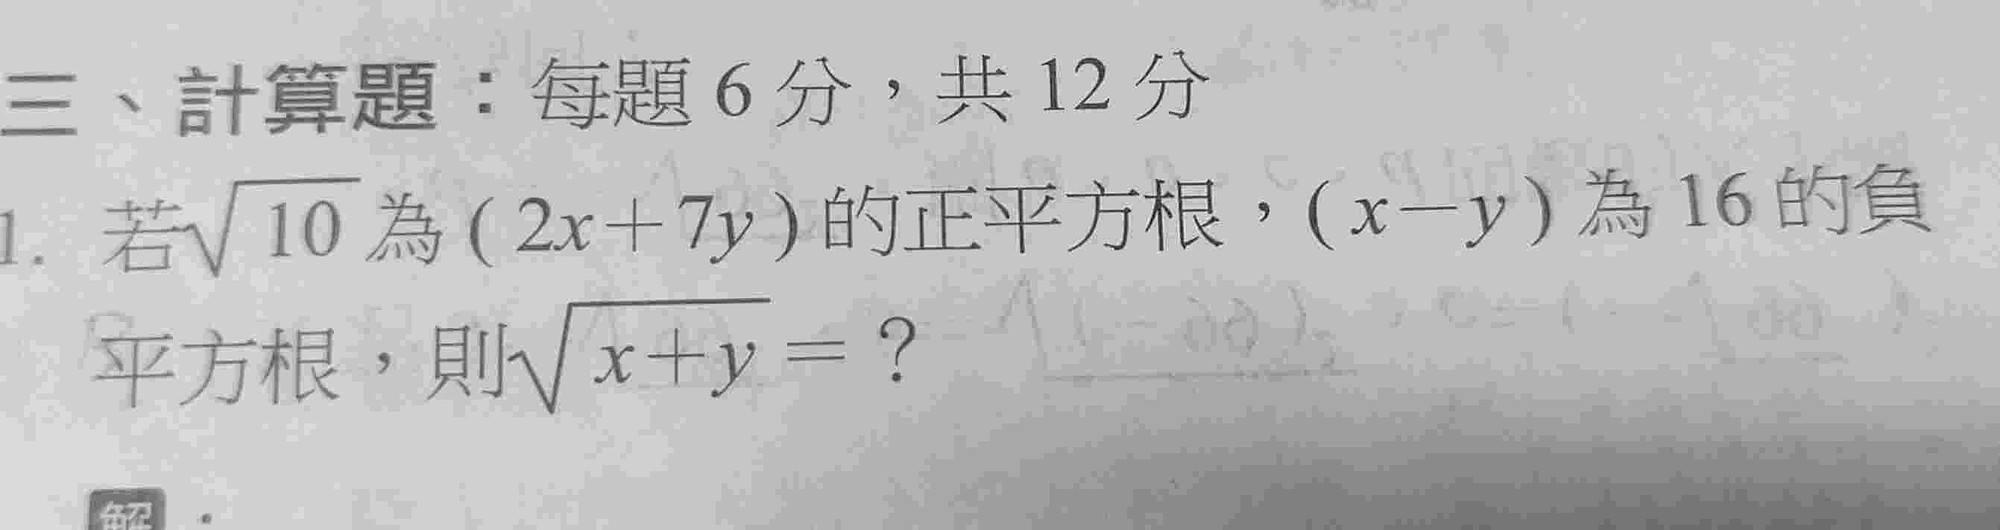 三、計算題：每題 6 分，共 12 分
1. 若√10 為 ( 2x＋7y ) 的正平方根，( x－y ) 為 16 的負
平方根，則√x＋y ＝？
解：